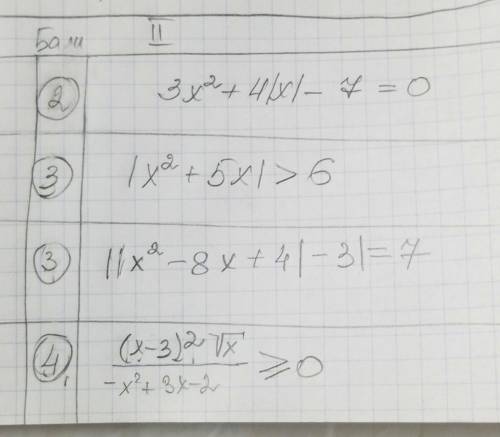 Бали II
2 3x² + 4|x| - 7 = 0
3 |x² + 5x| > 6
3 ||x² - 8x + 4| - 3| = 7
4 (x-3)² √x / -x² + 3x - 2 ⩾ 0